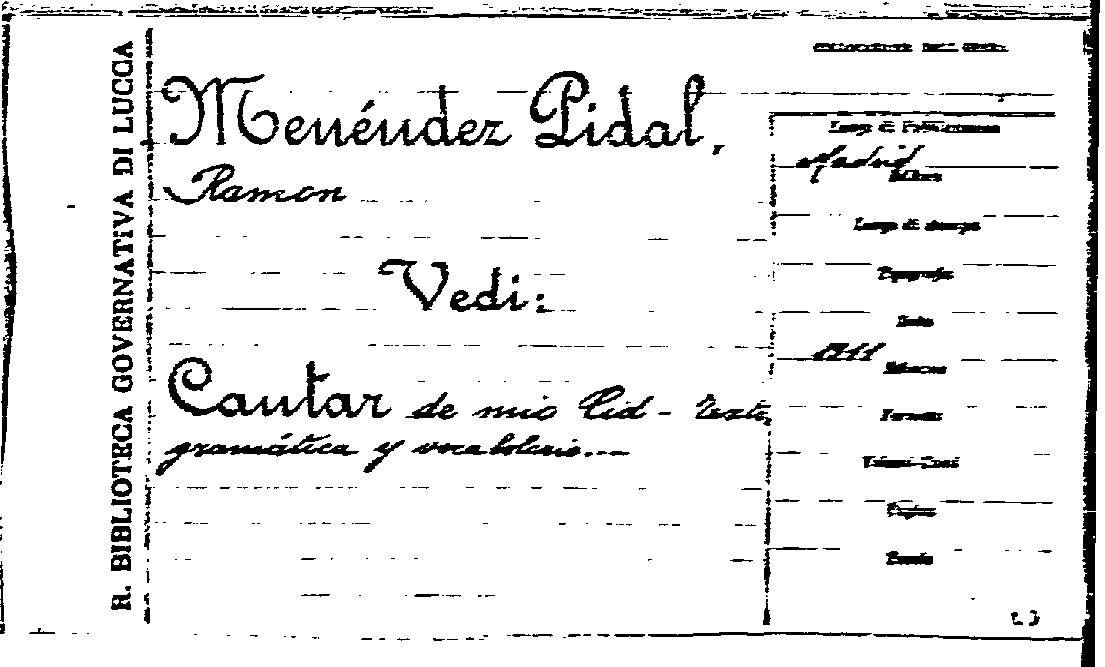 R. BIBLIOTECA GOVERNATIVA DI LUCCA
Menéndez Pidal,
Ramon
Vedi:
Cantar de mio Cid - Texto,
gramática y vocabolario...
Luogo di Pubblicazione
Madrid
Editore
Luogo di stampa
Tipografia
Data
1911
Edizione
Formato
Volumi
Pagine